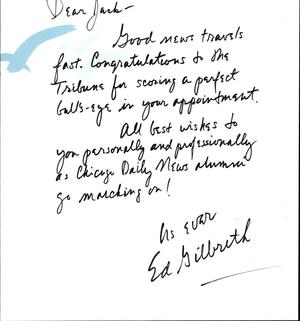 Dear Jack-
Good news travels
fast. Congratulations to the
Tribune for scoring a perfect
bull's-eye in your appointment.
All best wishes to
you personally and professionally
as Chicago Daily News alumni
go marching on!
As ever
Ed Gilbreth